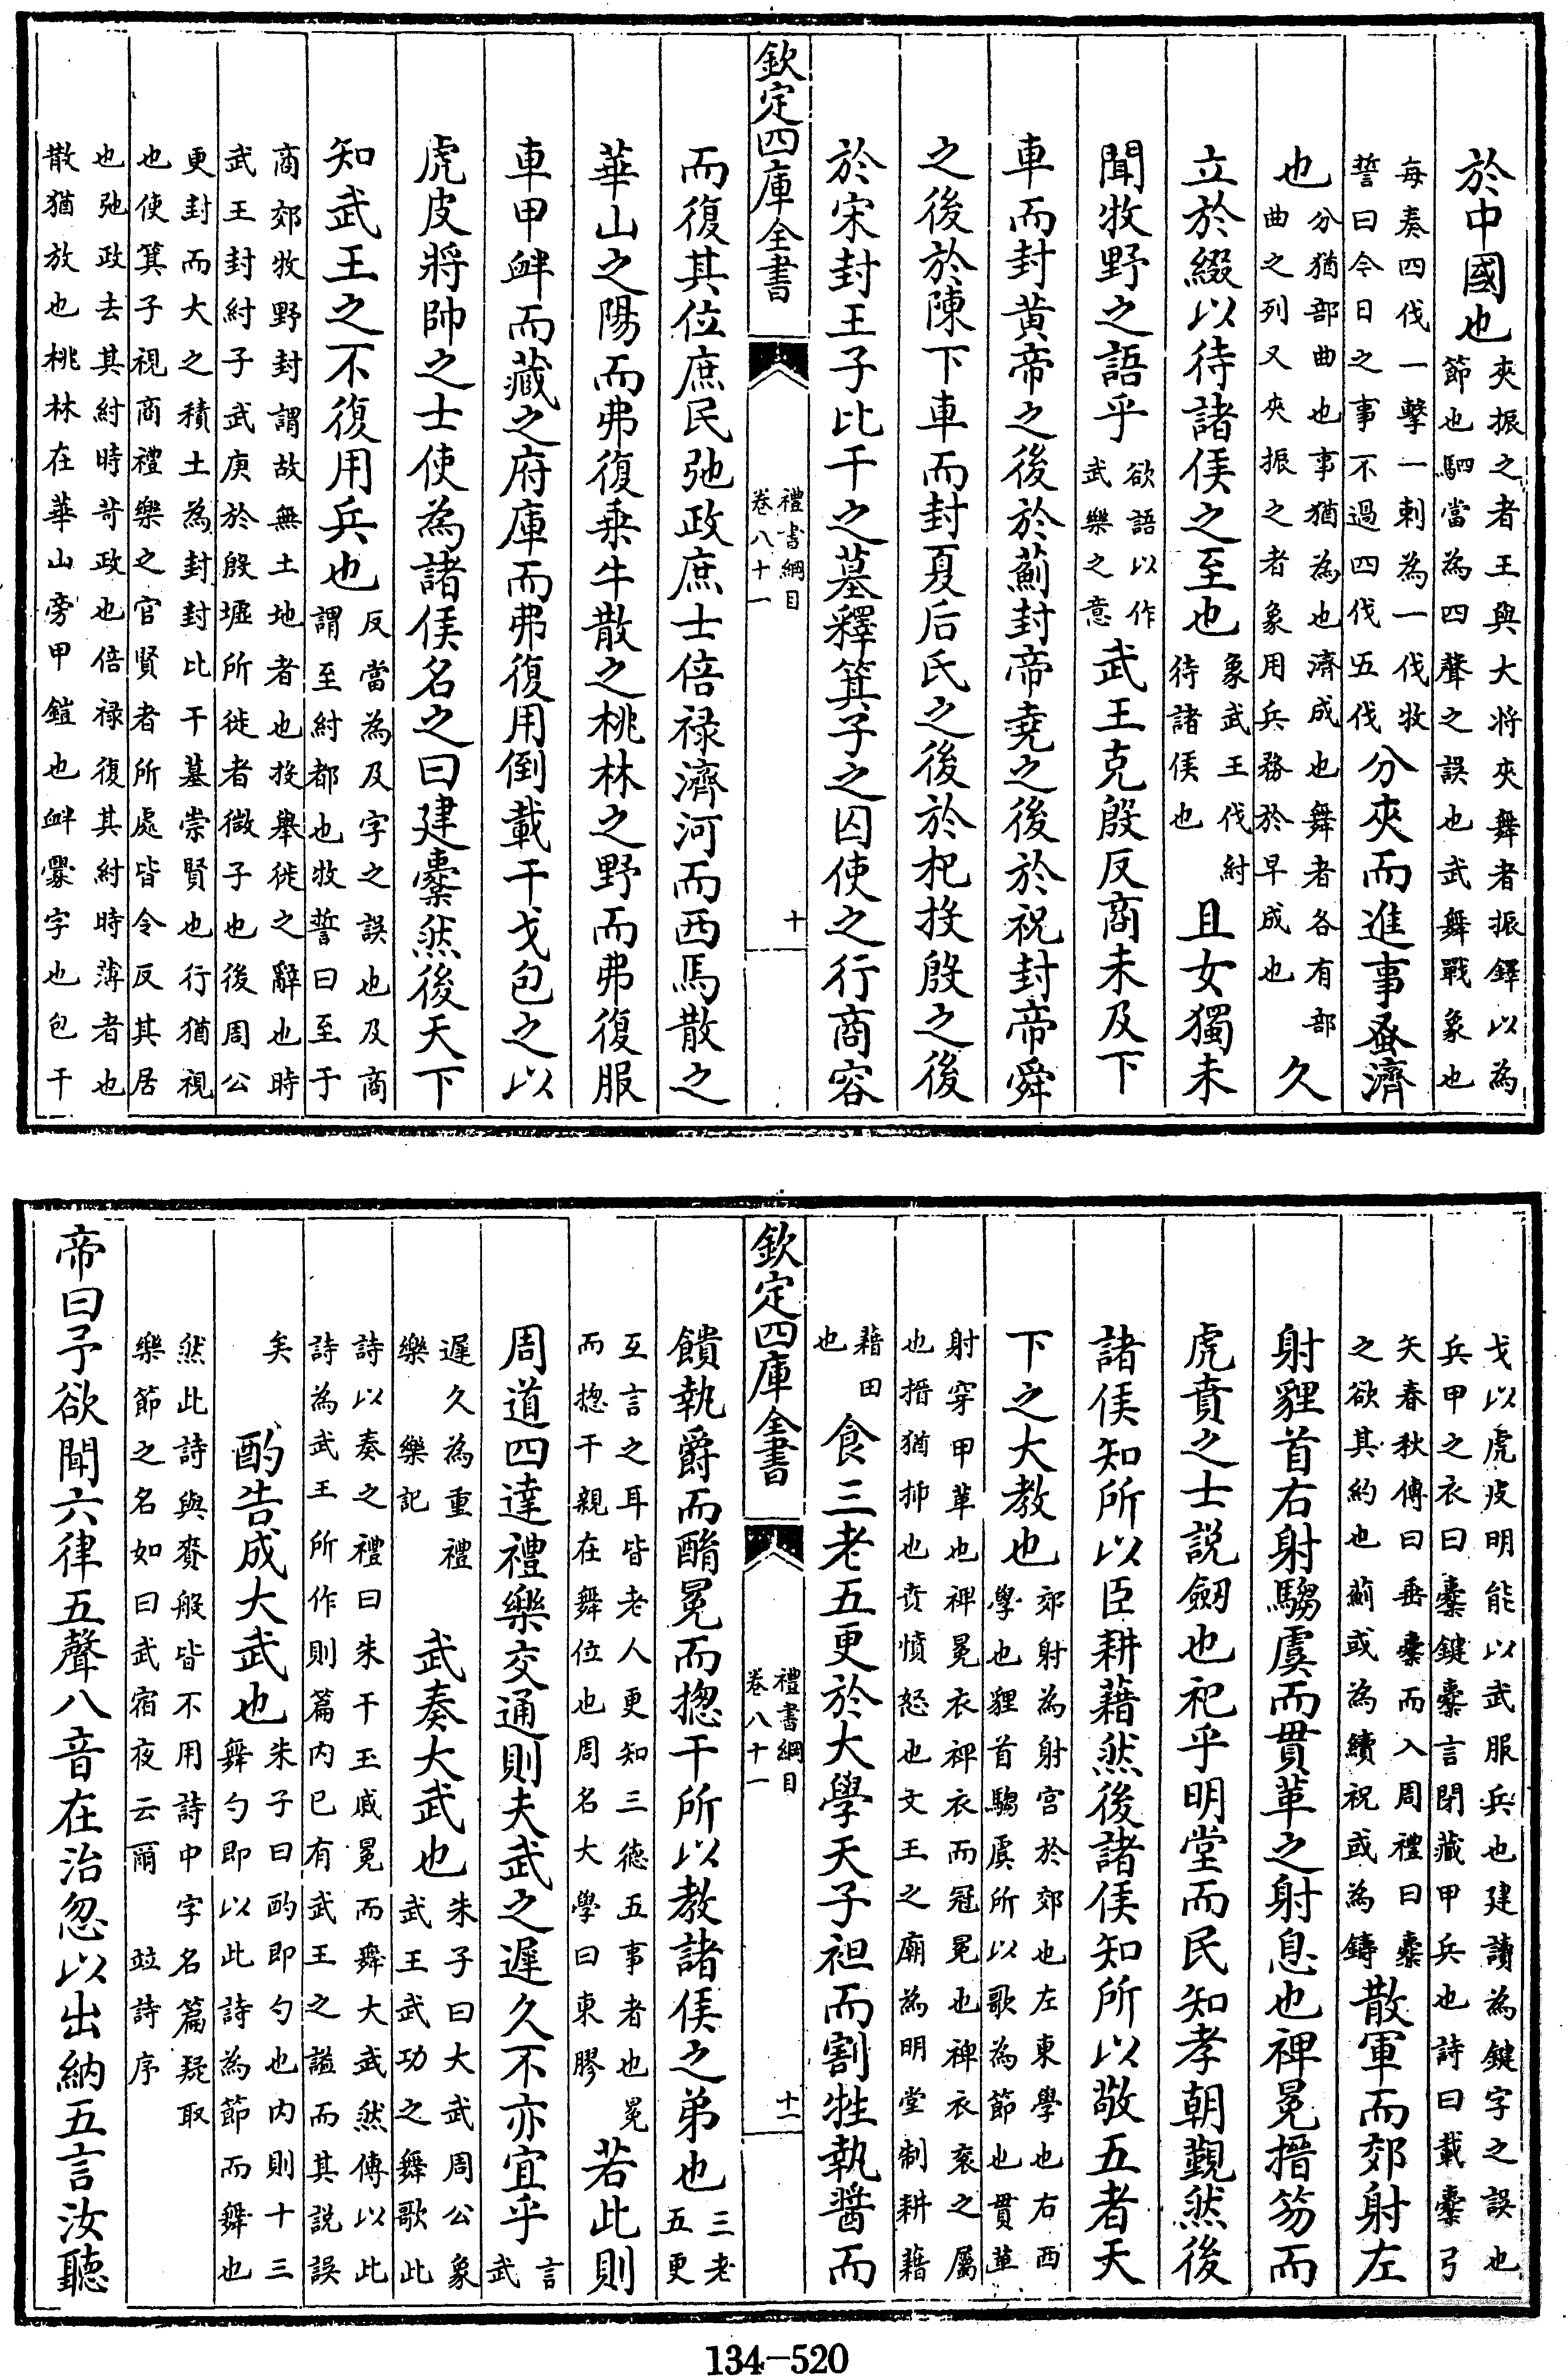 於中國也夾振之者王與大将夾舞者振鐸以為節也駟當為四聲之誤也武舞戰象也
每奏四伐一擊一刺為一伐牧誓曰今日之事不過四伐五伐分夾而進事蚤濟
也分猶部曲也事猶為也濟成也舞者各有部曲之列又夾振之者象用兵務於早成也久
立於綴以待諸侯之至也象武王伐紂待諸侯也且女獨未
聞牧野之語乎欲語以作武樂之意武王克殷反商未及下
車而封黄帝之後於薊封帝堯之後於祝封帝舜
之後於陳下車而封夏后氏之後於杞投殷之後
於宋封王子比干之墓釋箕子之囚使之行商容
欽定四庫全書
禮書綱目
卷八十一
十
而復其位庶民弛政庶士倍禄濟河而西馬散之
華山之陽而弗復乗牛散之桃林之野而弗復服
車甲衅而藏之府庫而弗復用倒載干戈包之以
虎皮將帥之士使為諸侯名之曰建櫜然後天下
知武王之不復用兵也反當為及字之誤也及商謂至紂都也牧誓曰至于
商郊牧野封謂故無土地者也投舉徙之辭也時武王封紂子武庚於殷墟所徙者微子也後周公
更封而大之積土為封封比干墓崇賢也行猶視也使箕子視商禮樂之官賢者所處皆令反其居
也弛政去其紂時苛政也倍禄復其紂時薄者也散猶放也桃林在華山旁甲鎧也衅釁字也包干
戈以虎皮明能以武服兵也建讀為鍵字之誤也兵甲之衣曰櫜鍵櫜言閉藏甲兵也詩曰載櫜弓
矢春秋傳曰垂櫜而入周禮曰櫜之欲其約也薊或為續祝或為鑄散軍而郊射左
射貍首右射騶虞而貫革之射息也裨冕搢笏而
虎賁之士說劒也祀乎明堂而民知孝朝覲然後
諸侯知所以臣耕藉然後諸侯知所以敬五者天
下之大教也郊射為射宮於郊也左東學也右西學也貍首騶虞所以歌為節也貫革
射穿甲革也裨冕衣裨衣而冠冕也裨衣衮之屬也搢猶揷也賁憤怒也文王之廟為明堂制耕藉
藉田也食三老五更於大學天子袒而割牲執醬而
欽定四庫全書
禮書綱目
卷八十一
十一
饋執爵而酳冕而揔干所以教諸侯之弟也三老五更
互言之耳皆老人更知三德五事者也冕而揔干親在舞位也周名大學曰東膠若此則
周道四達禮樂交通則夫武之遲久不亦宜乎言武
遲久為重禮樂樂記武奏大武也朱子曰大武周公象武王武功之舞歌此
詩以奏之禮曰朱干玉戚冕而舞大武然傳以此詩為武王所作則篇内已有武王之諡而其説誤
矣酌告成大武也朱子曰酌即勺也内則十三舞勺即以此詩為節而舞也
然此詩與賚般皆不用詩中字名篇疑取樂節之名如曰武宿夜云爾竝詩序
帝曰予欲聞六律五聲八音在治忽以出納五言汝聽
134-520